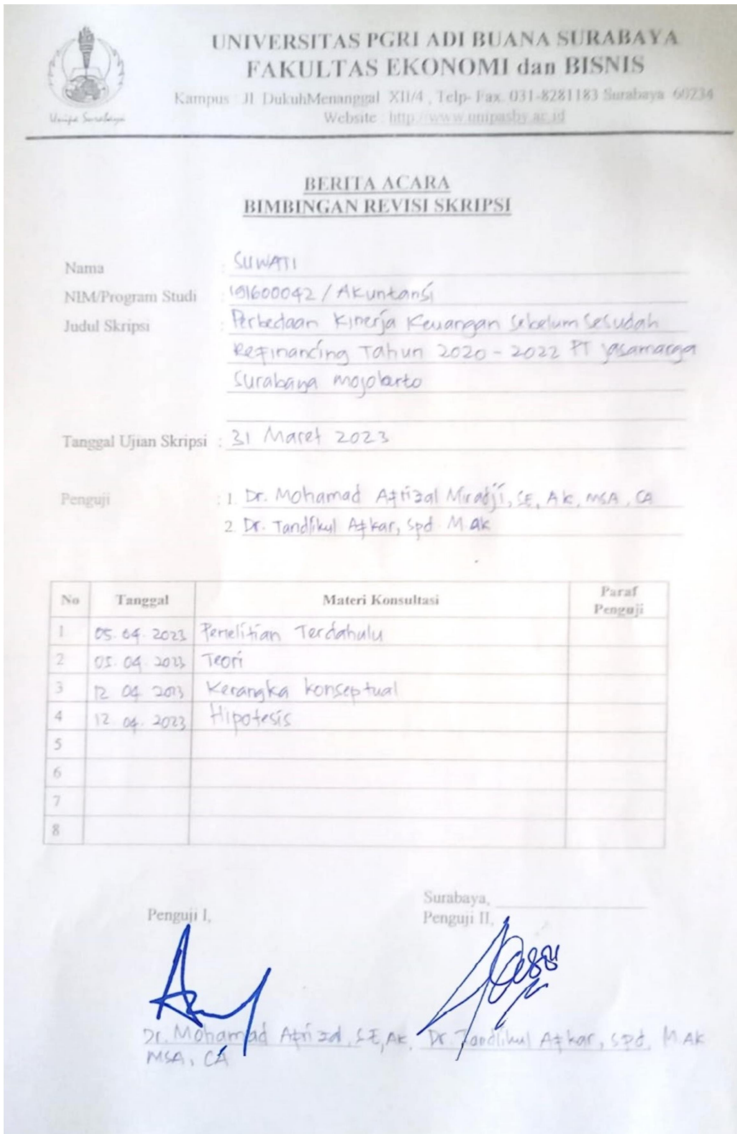 UNIVERSITAS PGRI ADI BUANA SURABAYA
FAKULTAS EKONOMI dan BISNIS
Kampus : Jl. DukuhMenanggal XII/4 , Telp- Fax. 031-8281183 Surabaya 60234
Website : http://www.unipasby.ac.id
Unipa Surabaya
BERITA ACARA
BIMBINGAN REVISI SKRIPSI
Nama : SUWATI
NIM/Program Studi : 191600042 / Akuntansi
Judul Skripsi : Perbedaan Kinerja Keuangan Sebelum Sesudah
Refinancing Tahun 2020 - 2022 PT Jasamarga
Surabaya mojokerto
Tanggal Ujian Skripsi : 31 Maret 2023
Penguji : 1. Dr. Mohamad Afrizal Miradji, SE, AK, MSA, CA
2. Dr. Tandlikul Afkar, Spd M.ak
No Tanggal Materi Konsultasi Paraf Penguji
1 05. 04. 2023 Penelitian Terdahulu
2 05. 04 2023 Teori
3 12 04 2023 Kerangka konseptual
4 12. 04. 2023 Hipotesis
5
6
7
8
Surabaya,
Penguji I, Penguji II,
Dr. Mohamad Afrizal, S.E, AK, Dr. Tandlikul Afkar, Spd, M.AK
MSA, CA